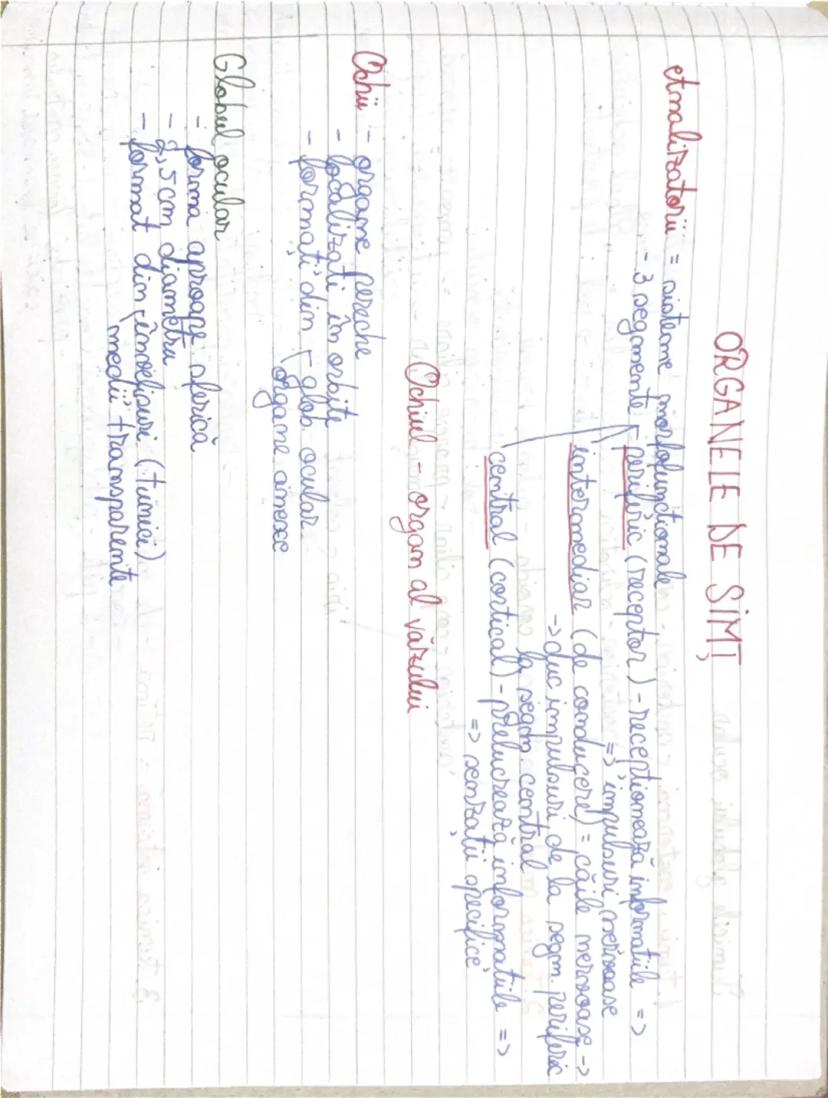 ORGANELE DE SIMȚ
Analizatorii = sisteme morfofuncționale
- 3 segmente - periferic (receptor) - recepționează informațiile =>
=> impulsuri nervoase
intermediar (de conducere) = căile nervoase ->
-> duc impulsuri de la segm. periferic
la segm. central
central (cortical) - prelucrează informațiile =>
=> senzații specifice
Ochiul - organ al văzului
Ochii - organe pereche
- localizați în orbite
- formați din glob ocular
organe anexe
Globul ocular
- forma aproape sferică
- 2,5 cm diametru
- format din învelișuri (tunici)
medii transparente